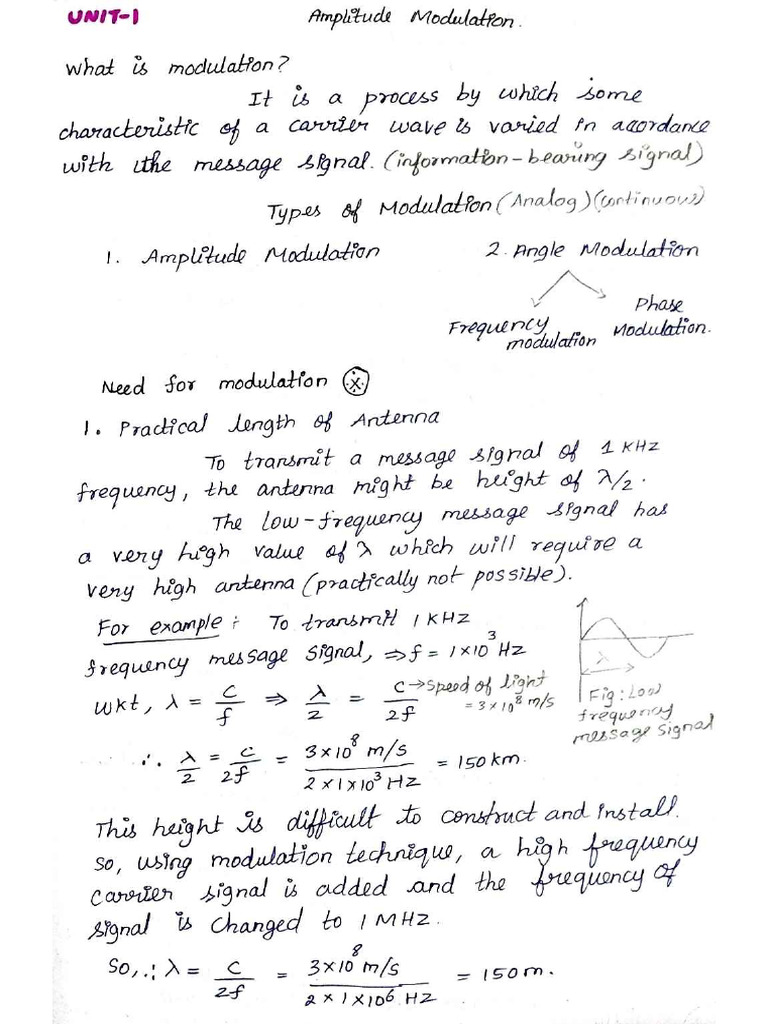 UNIT-1
Amplitude Modulation.
What is modulation?
It is a process by which some
characteristic of a carrier wave is varied in accordance
with the message signal. (information-bearing signal)
Types of Modulation (Analog) (continuous)
1. Amplitude Modulation
2. Angle Modulation
Frequency modulation
Phase Modulation.
Need for modulation
1. Practical length of Antenna
To transmit a message signal of 1 KHz
frequency, the antenna might be height of λ/2.
The low-frequency message signal has
a very high value of λ which will require a
very high antenna (practically not possible).
For example: To transmit 1 KHz
frequency message signal, ⇒ f = 1×10³ Hz
wkt, λ = C/f ⇒ λ/2 = C/2f
C → speed of light
= 3×10⁸ m/s
λ
Fig: Low
frequency
message signal
∴ λ/2 = C/2f = 3×10⁸ m/s / 2×1×10³ Hz = 150 km.
This height is difficult to construct and install.
So, using modulation technique, a high frequency
carrier signal is added and the frequency of
signal is changed to 1 MHz.
So, ∴ λ = C/2f = 3×10⁸ m/s / 2×1×10⁶ Hz = 150 m.